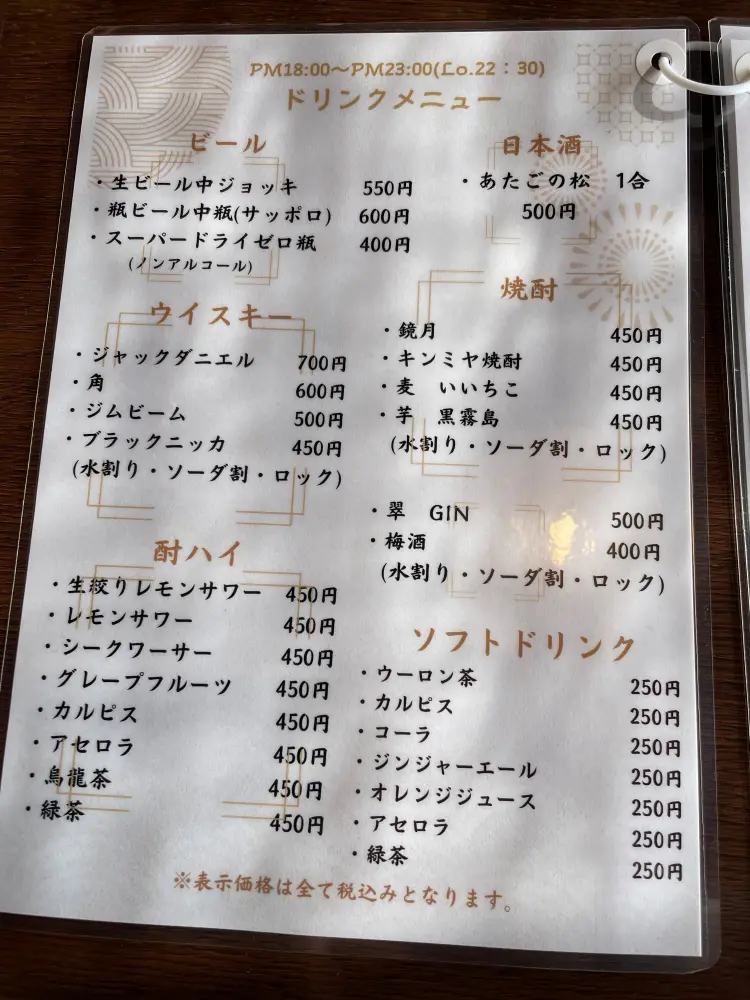 PM18:00〜PM23:00(Lo.22：30)
ドリンクメニュー
ビール
・生ビール中ジョッキ 550円
・瓶ビール中瓶(サッポロ) 600円
・スーパードライゼロ瓶 400円
(ノンアルコール)
ウイスキー
・ジャックダニエル 700円
・角 600円
・ジムビーム 500円
・ブラックニッカ 450円
(水割り・ソーダ割・ロック)
酎ハイ
・生絞りレモンサワー 450円
・レモンサワー 450円
・シークワーサー 450円
・グレープフルーツ 450円
・カルピス 450円
・アセロラ 450円
・烏龍茶 450円
・緑茶 450円
日本酒
・あたごの松 1合
500円
焼酎
・鏡月 450円
・キンミヤ焼酎 450円
・麦 いいちこ 450円
・芋 黒霧島 450円
(水割り・ソーダ割・ロック)
・翠 GIN 500円
・梅酒 400円
(水割り・ソーダ割・ロック)
ソフトドリンク
・ウーロン茶 250円
・カルピス 250円
・コーラ 250円
・ジンジャーエール 250円
・オレンジジュース 250円
・アセロラ 250円
・緑茶 250円
※表示価格は全て税込みとなります。